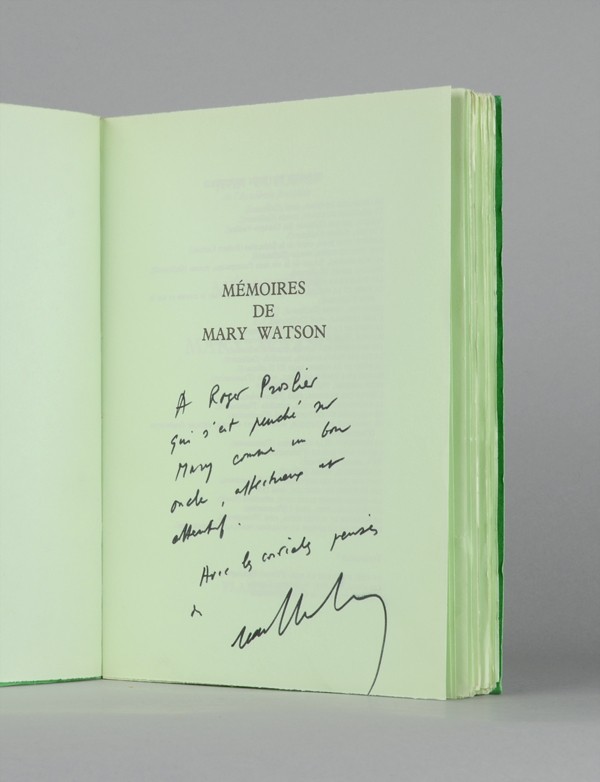 MÉMOIRES
DE
MARY WATSON
A Roger Proslier
qui s'est penché sur
Mary comme un bon
oncle, affectueux et
attentif.
Avec les cordiales pensées
de